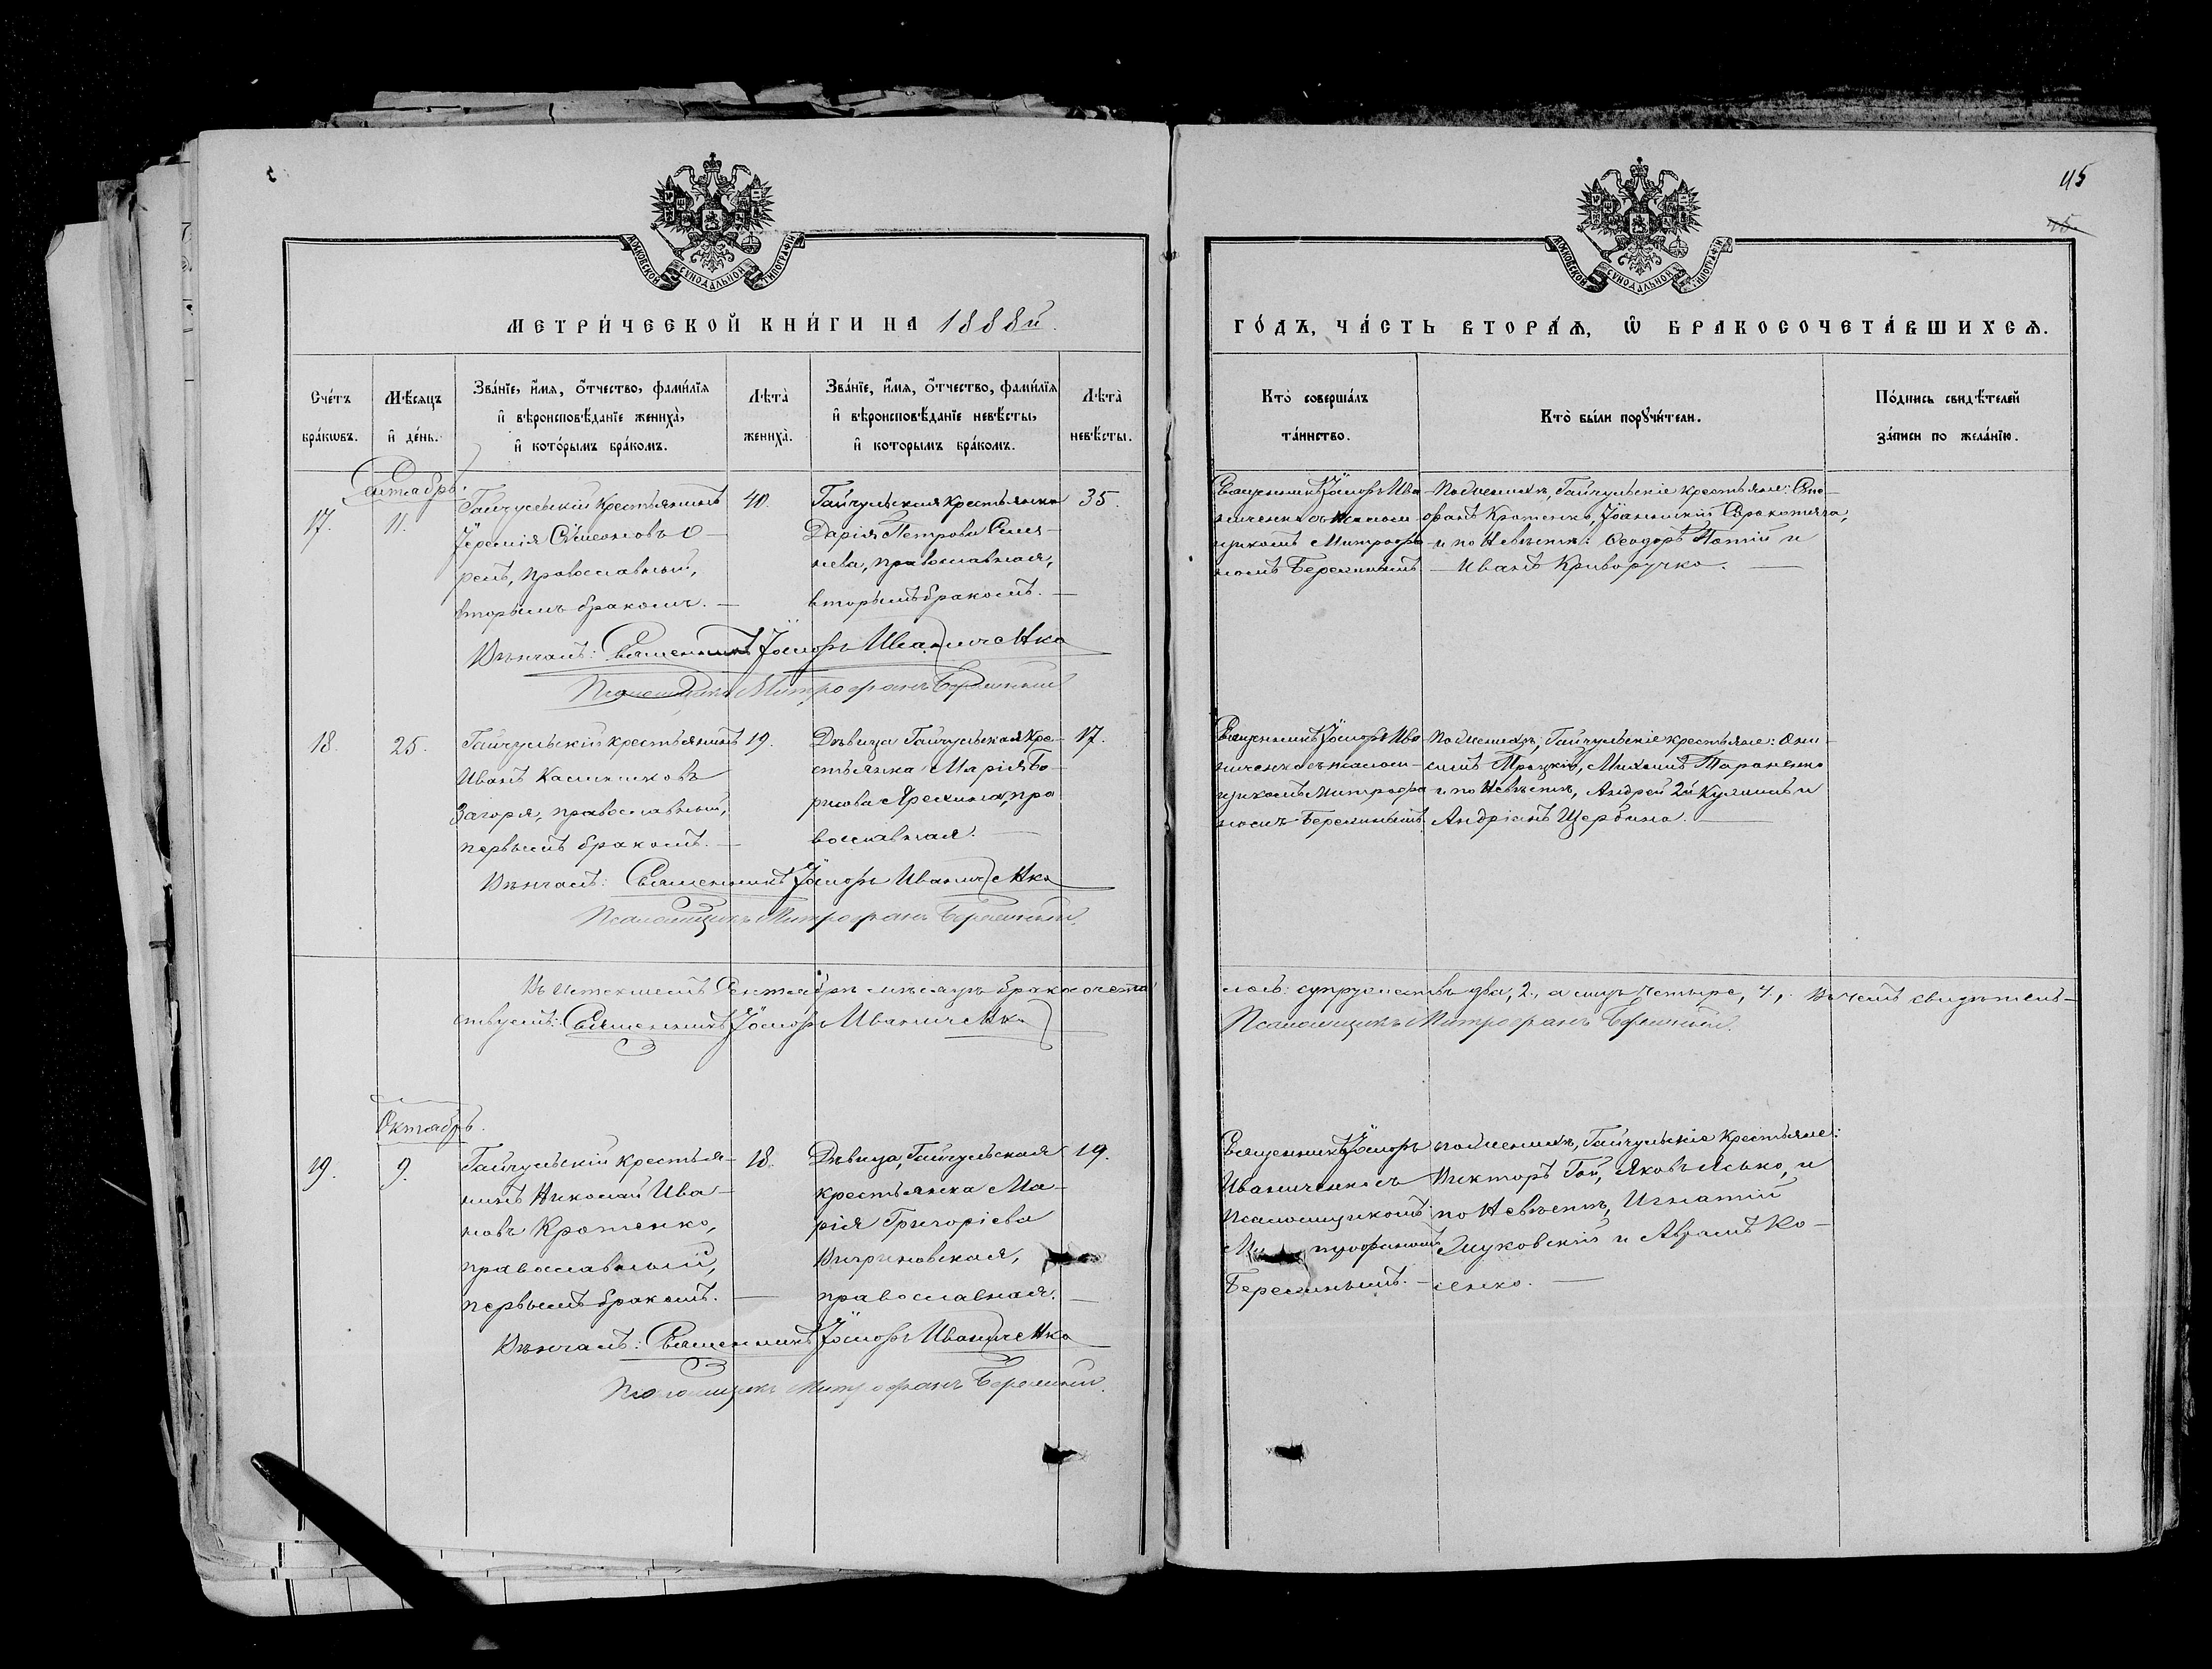 45
45.
МОСКОВСКОЙ СѴНОДАЛЬНОЙ ТИПОГРАФІИ
МОСКОВСКОЙ СѴНОДАЛЬНОЙ ТИПОГРАФІИ
МЕТРИ́ЧЕСКОЙ КНИ́ГИ НА 1888й.
ГО́ДЪ, ЧА́СТЬ ВТОРА́Я, Ѿ БРАКОСОЧЕТА́ВШИХСЯ.
Сче́тъ бра́кѡвъ.
Мѣ́сяцъ и҆ де́нь.
Зва́нїе, и҆́мя, о҆́тчество, фами́лїя
и҆ вѣроисповѣ́данїе жениха̀,
и҆ кото́рымъ бра́комъ.
Лѣта̀ жениха̀.
Зва́нїе, и҆́мя, о҆́тчество, фами́лїя
и҆ вѣроисповѣ́данїе невѣ́сты,
и҆ кото́рымъ бра́комъ.
Лѣта̀ невѣ́сты.
Кто̀ соверша́лъ та́инство.
Кто̀ бы́ли порꙋчи́тели.
По́дпись свидѣ́телей за́писи по жела́нїю.
Сентябрь.
17.
11.
Гайчульскій крестьянинъ
Іеремія Сѵмеоновъ О-
релъ, православный,
вторымъ бракомъ. —
40.
Гайчульская крестьянка
Дарія Петрова Селе-
нева, православная,
вторымъ бракомъ. —
35.
Священникъ Іосифъ Ива-
ниченко съ псалом-
щикомъ Митрофа-
номъ Бережнымъ
По женихѣ, Гайчульскіе крестьяне: Сте-
фанъ Кротенко, Іоанникій Сорокотяга,
и по невѣстѣ: Ѳеодоръ Нотій и
Иванъ Криворучко. —
Вѣнчалъ: Священникъ Іосифъ Иваниченко
Псаломщикъ Митрофанъ Бережный
18.
25.
Гайчульскій крестьянинъ
Иванъ Каллиниковъ
Загоря, православный,
первымъ бракомъ. —
19.
Дѣвица Гайчульская кре-
стьянка Марія Бо-
рисова Яремина, пра
вославная. —
17.
Священникъ Іосифъ Ива-
ниченко съ псалом-
щикомъ Митрофа-
номъ Бережнымъ
По женихѣ, Гайчульскіе крестьяне: Они-
симъ Троцкій, Михаилъ Тараненко
и по невѣстѣ, Андрей 2й Кулишъ и
Андріанъ Щербина. —
Вѣнчалъ: Священникъ Іосифъ Иваниченко
Псаломщикъ Митрофанъ Бережный.
Въ истекшемъ Сентябрѣ мѣсяцѣ бракосочета-
лось: супружествъ два, 2., а лицъ четыре, 4., въ чемъ свидѣтель-
ствуемъ: Священникъ Іосифъ Иваниченко
Псаломщикъ Митрофанъ Бережный.
Октябрь.
19.
9.
Гайчульскій крестья-
нинъ Николай Ива-
новъ Кротенко,
православный,
первымъ бракомъ. —
18.
Дѣвица, Гайчульская
крестьянка Ма-
рія Григоріева
Вигриновская,
православная. —
19.
Священникъ Іосифъ
Иваниченко съ
Псаломщикомъ
Митрофаномъ
Бережнымъ. —
по женихѣ, Гайчульскіе крестьяне:
Викторъ Гой, Яковъ Ясько, и
по невѣстѣ, Игнатій
Жуковскій и Аврамъ Ко-
ленко. —
Вѣнчалъ: Священникъ Іосифъ Иваниченко
Псаломщикъ Митрофанъ Бережный.